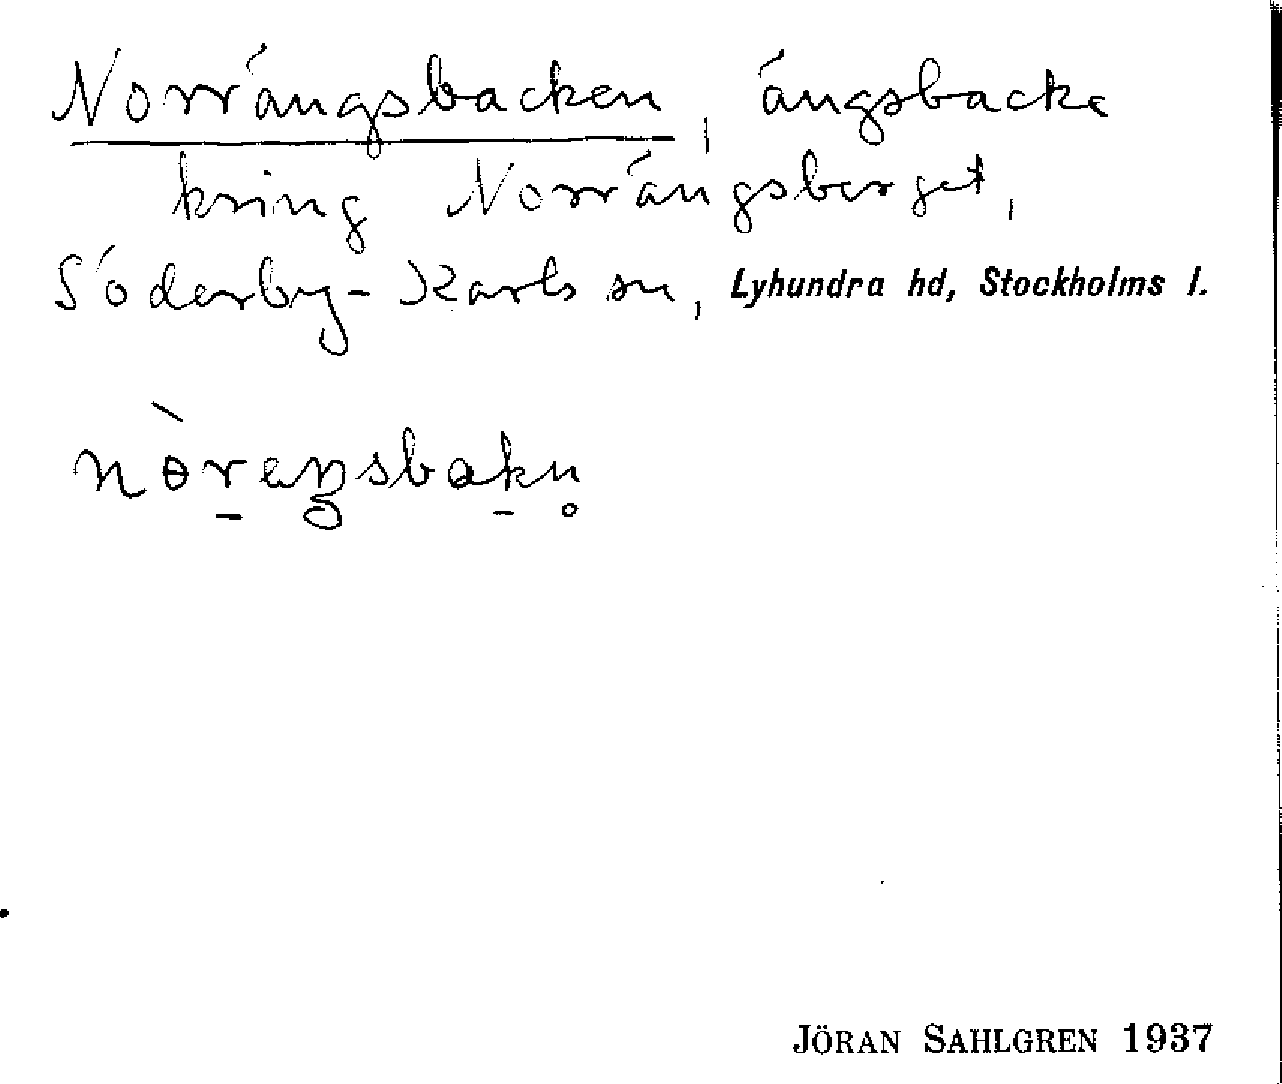 Norrängsbacken, ängsbacke
kring Norrängsberget,
Söderby-Karls sn, Lyhundra hd, Stockholms l.
nòrеŋsbakn̥
JÖRAN SAHLGREN 1937